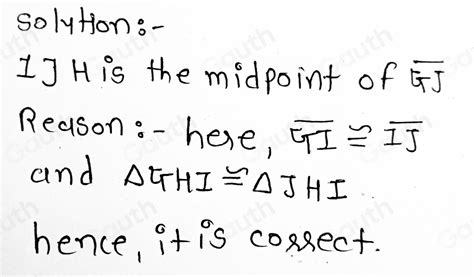 Solution:-
1] H is the midpoint of GJ
Reason:- here, GI ≅ IJ
and △GHI ≅ △JHI
hence, it is correct.